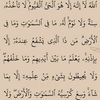 اللَّهُ لَا إِلَٰهَ إِلَّا هُوَ الْحَيُّ الْقَيُّومُ لَا تَأْخُذُهُ
الْأَرْضِ مَن ذَا الَّذِي يَشْفَعُ عِندَهُ إِلَّا
بِإِذْنِهِ يَعْلَمُ مَا بَيْنَ أَيْدِيهِمْ وَمَا خَلْفَهُمْ
وَلَا يُحِيطُونَ بِشَيْءٍ مِّنْ عِلْمِهِ إِلَّا بِمَا
شَاءَ وَسِعَ كُرْسِيُّهُ السَّمَاوَاتِ وَالْأَرْضَ وَلَا